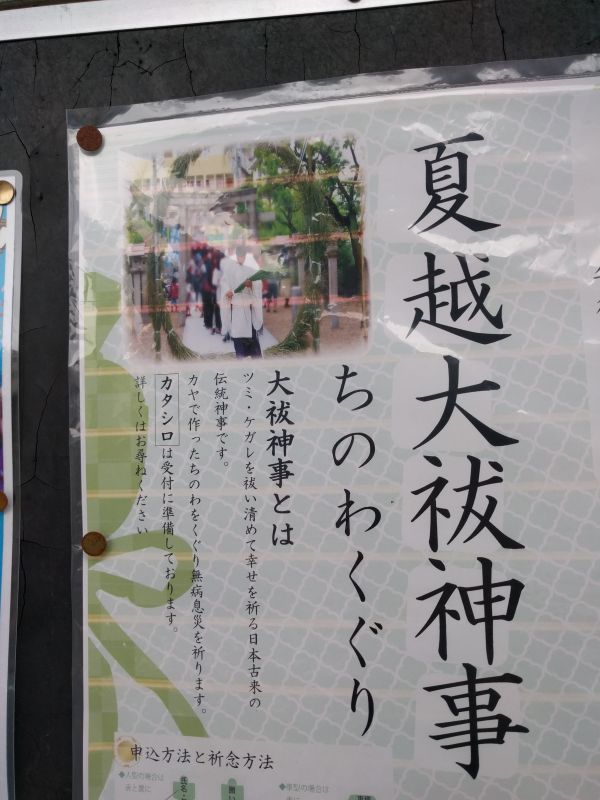 夏越大祓神事
ちのわくぐり
大祓神事とは
ツミ・ケガレを祓い清めて幸せを祈る日本古来の
伝統神事です。
カヤで作ったちのわをくぐり無病息災を祈ります。
カタシロは受付に準備しております。
詳しくはお尋ねください
申込方法と祈念方法
◆人型の場合は
表と裏に
氏名・
願い
◆車型の場合は